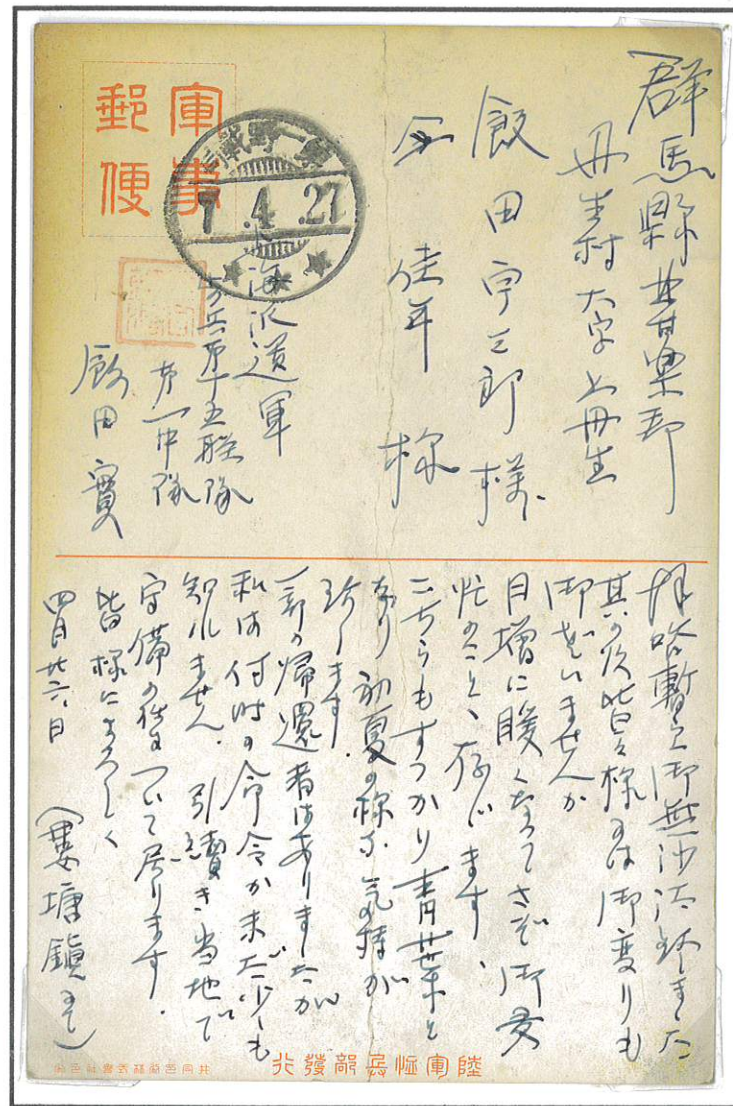 軍事
郵便
第一野戰局
7.4.27
群馬縣甘楽郡
丹生村大字上丹生
飯田宇三郎様
佳年様
上海派遣軍
歩兵第十五聯隊
第一中隊
飯田實
拝啓暫く御無沙汰致しました
其の後皆々様には御変りも
御ざいませんか
日増に暖くなってさぞ御多
忙のことゝ存じます、
こちらもすつかり青葉と
なり初夏の様な気持が
致します.
一部の帰還者はありましたが
私は何時の命令か未だ少しも
知れません. 引續き当地で
守備の任について居ります.
皆様によろしく
四月廿六日
(婁塘鎭にて)
陸軍恤兵部發行